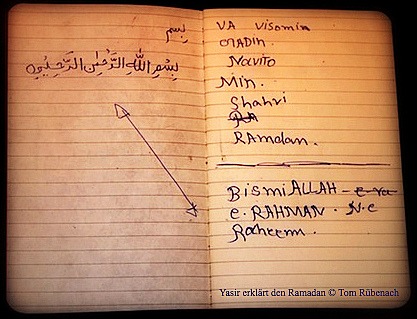 بسم
بِسْمِ اللهِ الرَّحْمٰنِ الرَّحِيْمِ
VA visomin
GADin.
Navito
Min.
Shahri
RAmadan.
BismiALLAH –
e. RAHMAN. N.e
Raheem.
Yasir erklärt den Ramadan © Tom Rübenach